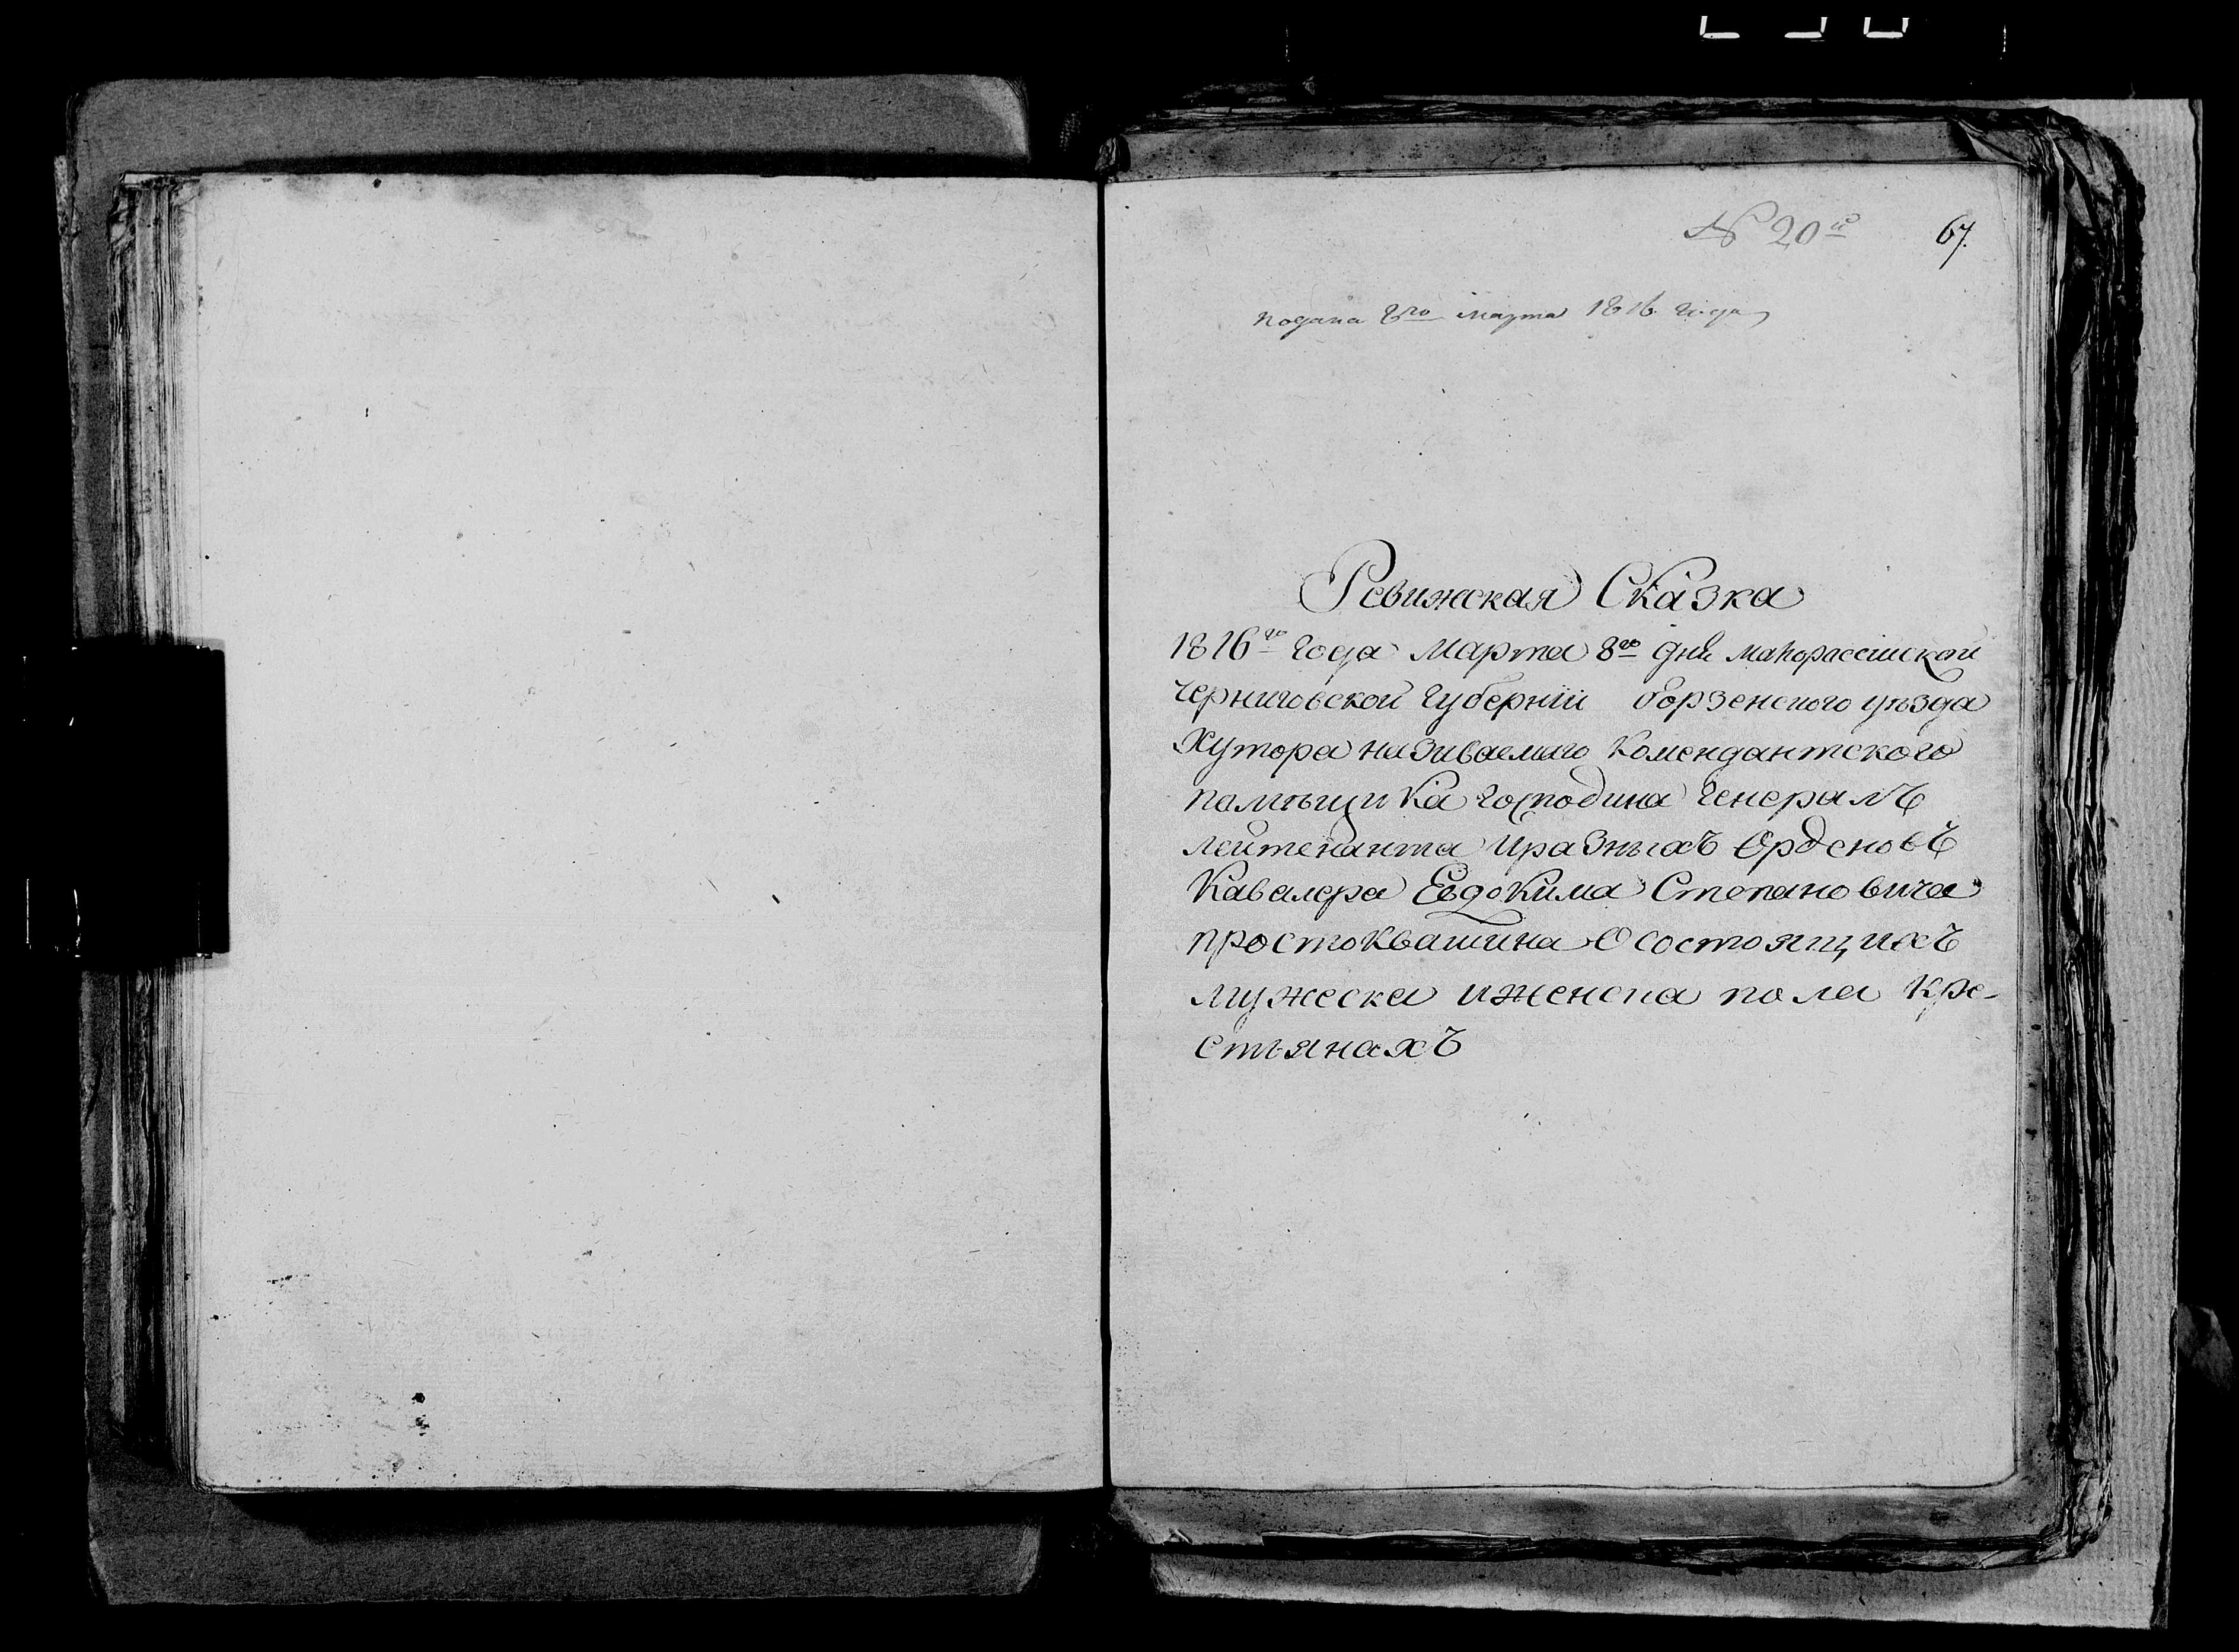 № 20й
67.
подана 8го марта 1816 года
Ревижская Сказка
1816го года марта 8го дня малороссииской
черниговской губернии борзенского уѣзда
Хутора називаемаго Комендантского
помѣщика господина генералъ
лейтенанта иразныхъ Орденовъ
Кавалера Евдокима Степановича
простоквашина О состоящихъ
мужеска иженска пола кре-
стьянахъ